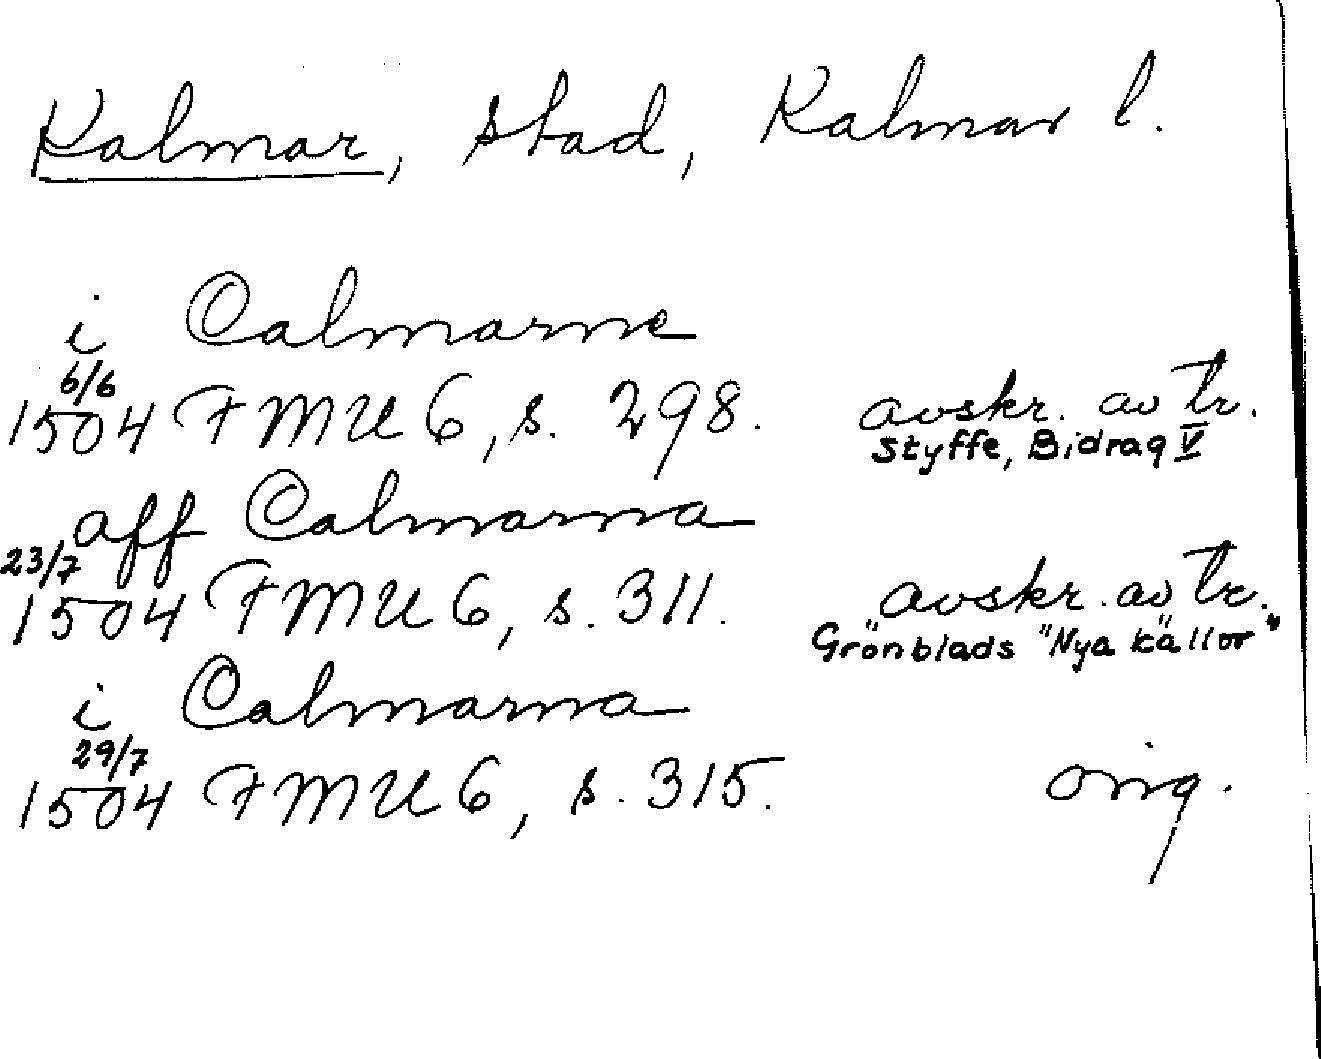 Kalmar, stad, Kalmar l.
i Calmarne
6/6
1504 FMU 6, s. 298. avskr. av tr.
Styffe, Bidrag V
aff Calmarna
23/7
1504 FMU 6, s. 311. avskr. av tr.
Grönblads "Nya källor"
i Calmarna
29/7
1504 FMU 6, s. 315. orig.